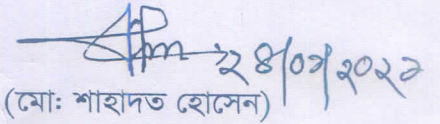 ২৪/০৭/২০২২
(মোঃ শাহাদত হোসেন)